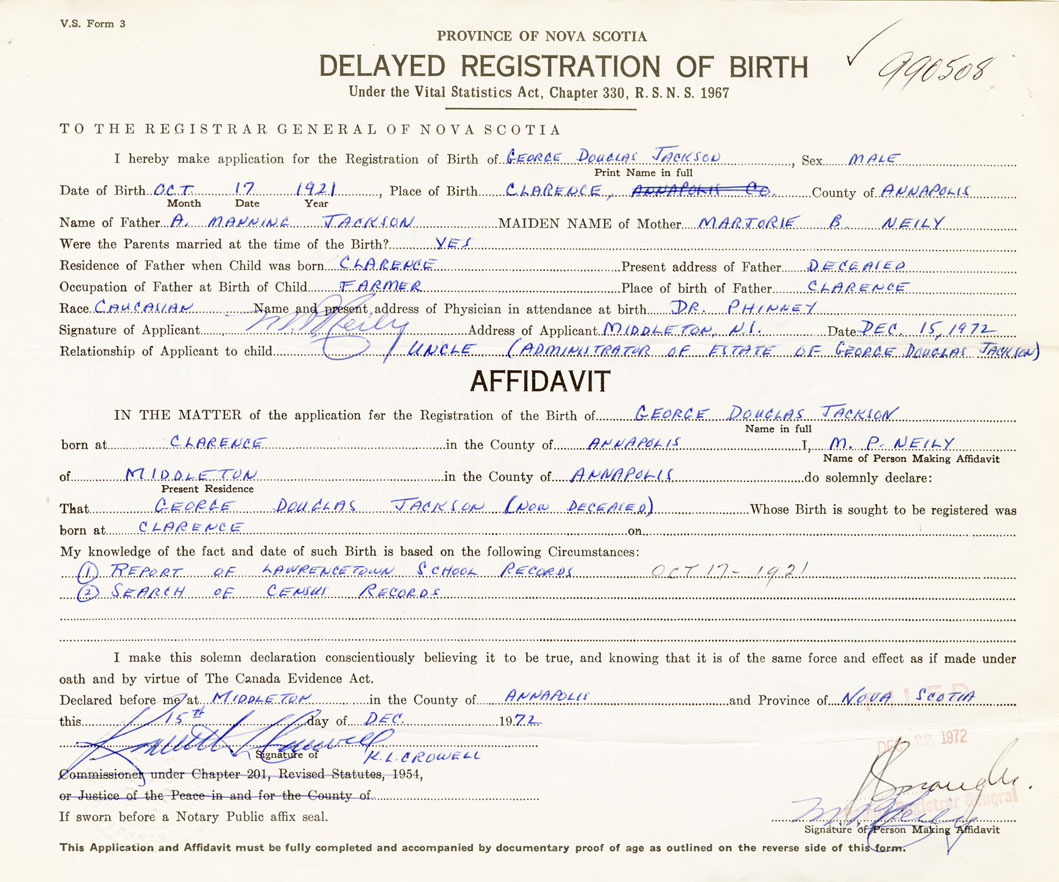 V.S. Form 3
PROVINCE OF NOVA SCOTIA
990508
DELAYED REGISTRATION OF BIRTH
Under the Vital Statistics Act, Chapter 330, R. S. N. S. 1967
TO THE REGISTRAR GENERAL OF NOVA SCOTIA
I hereby make application for the Registration of Birth of GEORGE DOUGLAS JACKSON, Sex MALE
Print Name in full
Date of Birth OCT 17 1921, Place of Birth CLARENCE, ANNAPOLIS CO. County of ANNAPOLIS
Month Date Year
Name of Father A. MANNING JACKSON MAIDEN NAME of Mother MARJORIE B. NEILY
Were the Parents married at the time of the Birth? YES
Residence of Father when Child was born CLARENCE Present address of Father DECEASED
Occupation of Father at Birth of Child FARMER Place of birth of Father CLARENCE
Race CAUCASIAN Name and present address of Physician in attendance at birth DR. PHINNEY
Signature of Applicant M P Neily Address of Applicant MIDDLETON, N.S. Date DEC. 15, 1972
Relationship of Applicant to child UNCLE (ADMINISTRATOR OF ESTATE OF GEORGE DOUGLAS JACKSON)
AFFIDAVIT
IN THE MATTER of the application for the Registration of the Birth of GEORGE DOUGLAS JACKSON
Name in full
born at CLARENCE in the County of ANNAPOLIS I, M. P. NEILY
Name of Person Making Affidavit
of MIDDLETON in the County of ANNAPOLIS do solemnly declare:
Present Residence
That GEORGE DOUGLAS JACKSON (NOW DECEASED) Whose Birth is sought to be registered was
born at CLARENCE on
My knowledge of the fact and date of such Birth is based on the following Circumstances:
① REPORT OF LAWRENCETOWN SCHOOL RECORDS OCT 17 - 1921
② SEARCH OF CENSUS RECORDS
I make this solemn declaration conscientiously believing it to be true, and knowing that it is of the same force and effect as if made under
oath and by virtue of The Canada Evidence Act.
Declared before me at MIDDLETON in the County of ANNAPOLIS and Province of NOVA SCOTIA
this 15TH day of DEC. 1972
DEC 22 1972
Kenneth L Crowell
Signature of K. L. CROWELL
Commissioner under Chapter 201, Revised Statutes, 1954,
or Justice of the Peace in and for the County of
Registrar General
M P Neily
If sworn before a Notary Public affix seal.
Signature of Person Making Affidavit
This Application and Affidavit must be fully completed and accompanied by documentary proof of age as outlined on the reverse side of this form.